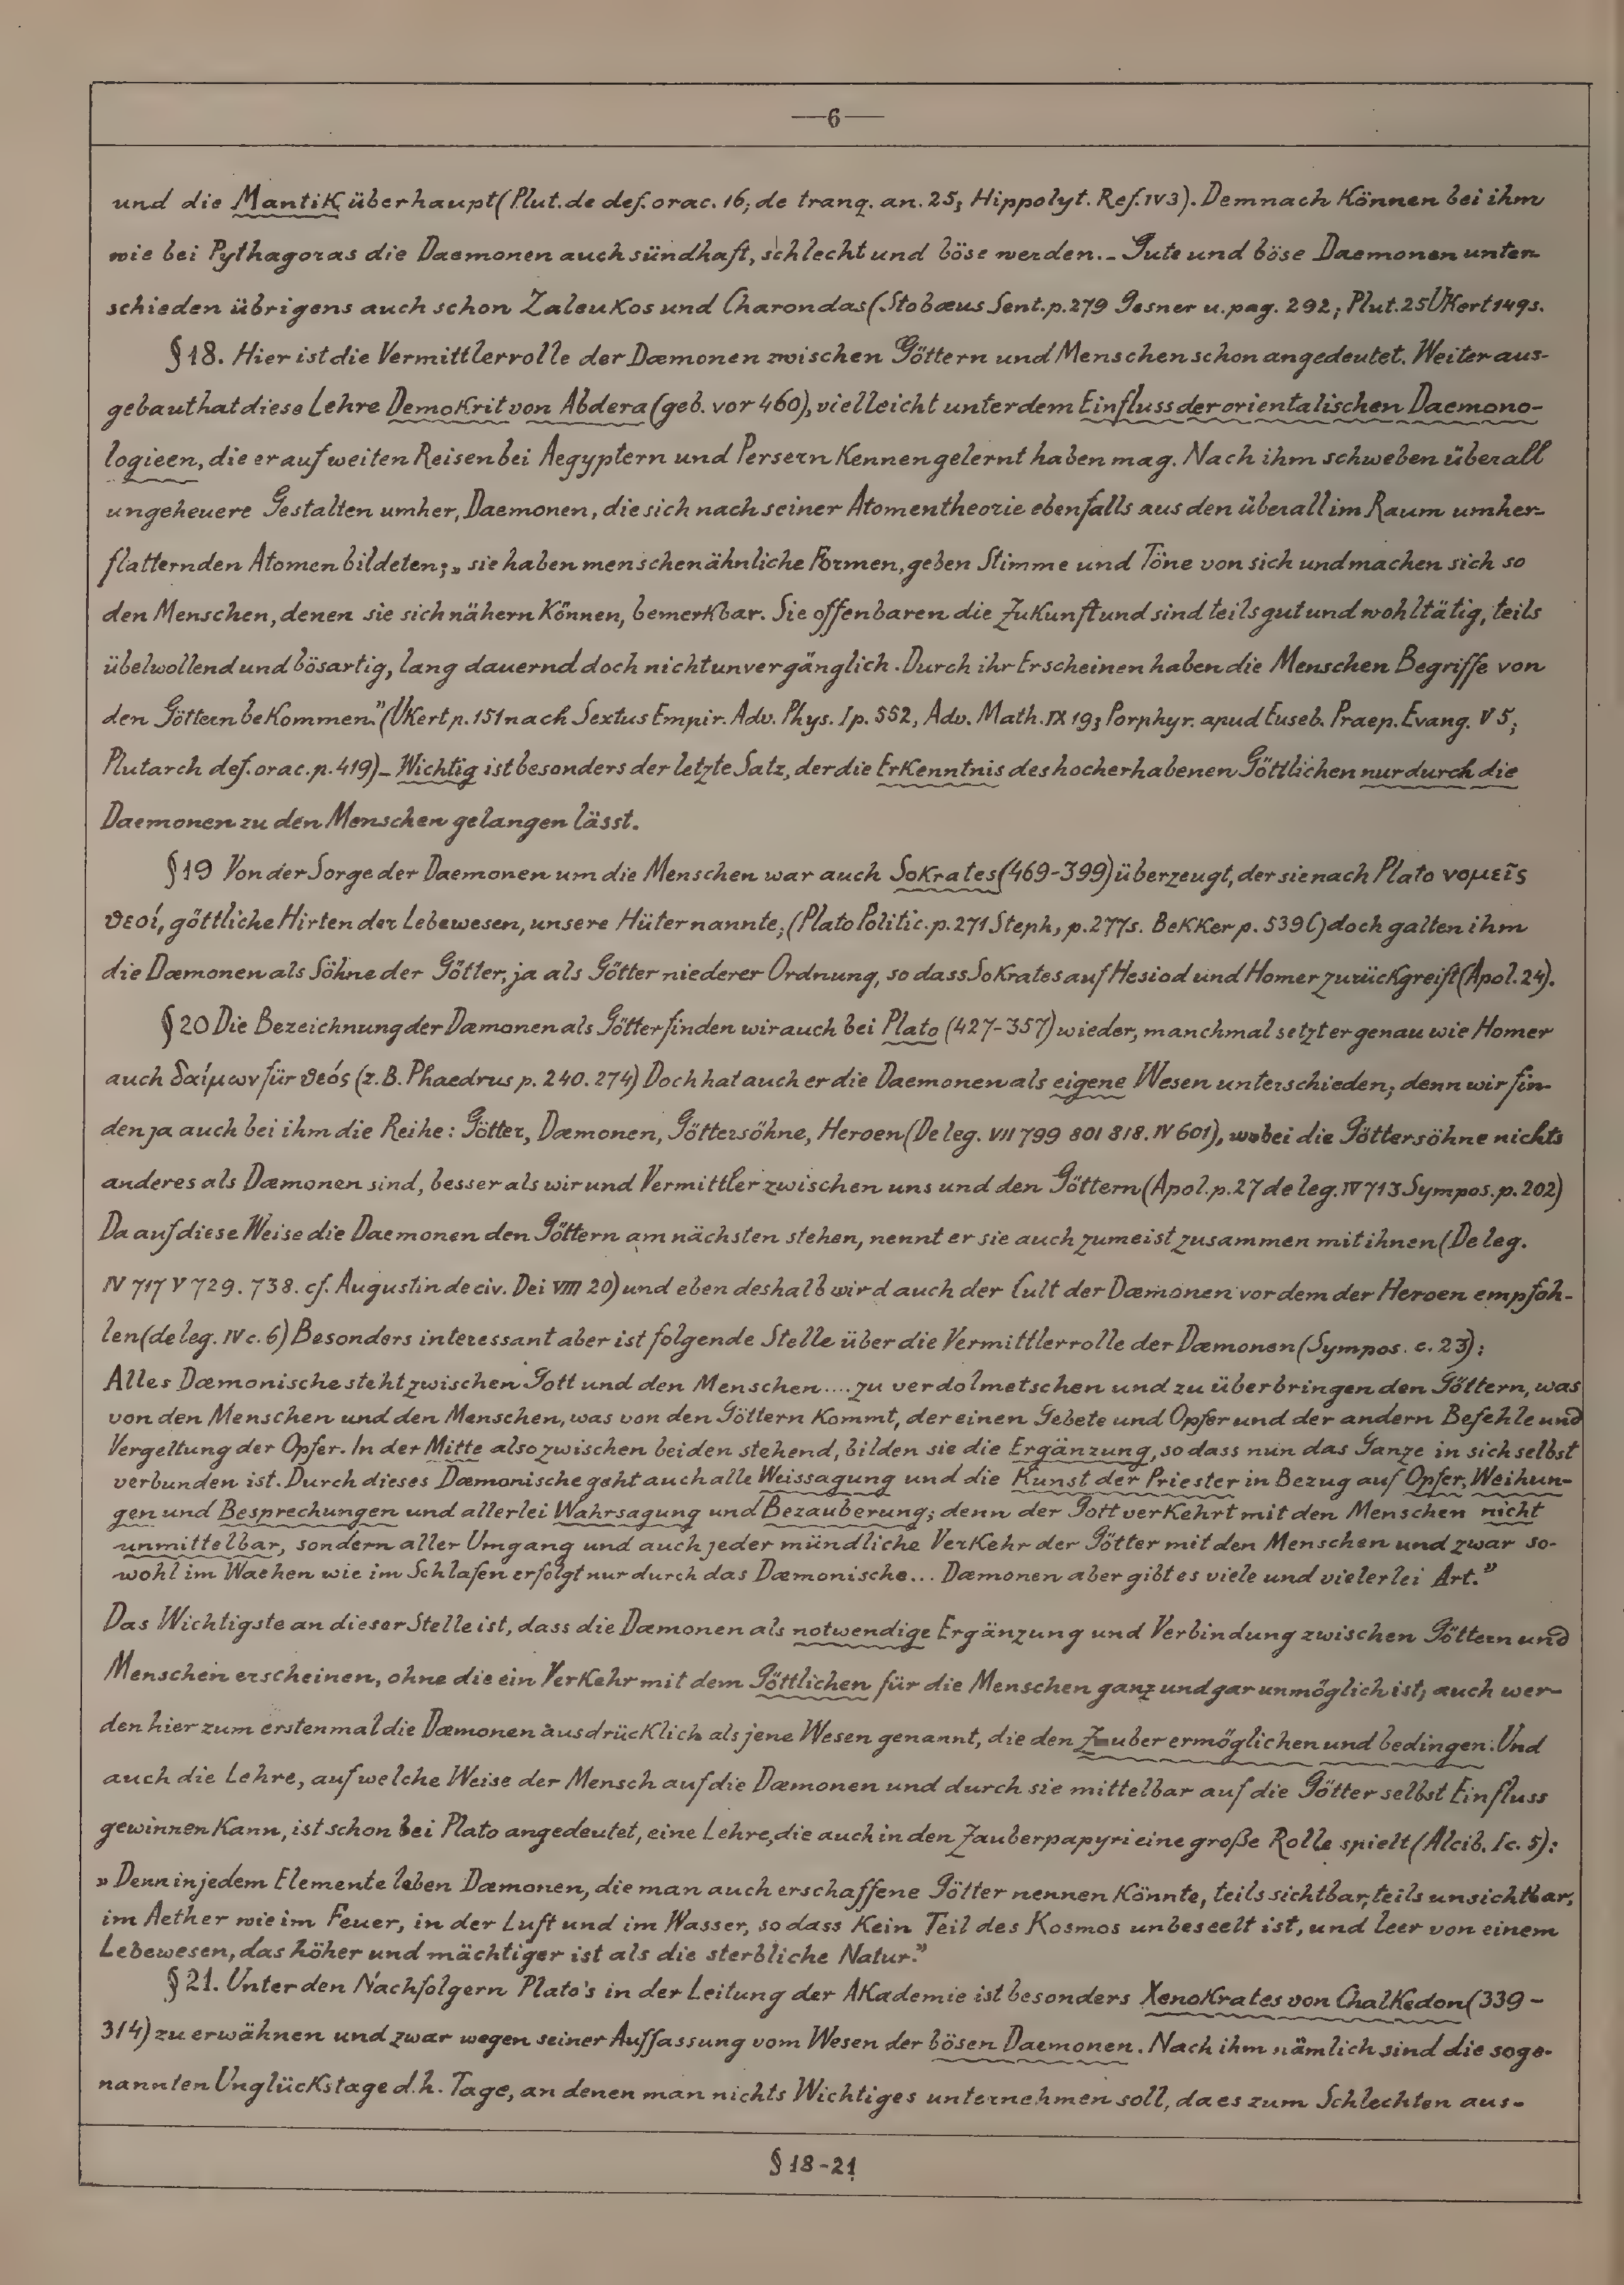 —6—
und die Mantik überhaupt (Plut. de def. orac. 16; de tranq. an. 25; Hippolyt. Ref. IV 3). Demnach können bei ihm
wie bei Pythagoras die Daemonen auch sündhaft, schlecht und böse werden. – Gute und böse Daemonen unter-
schieden übrigens auch schon Zaleukos und Charondas (Stobæus Sent. p. 279 Gesner u. pag. 292; Plut. 25 Ukert 149s.
§ 18. Hier ist die Vermittlerrolle der Dæmonen zwischen Göttern und Menschen schon angedeutet. Weiter aus-
gebaut hat diese Lehre Demokrit von Abdera (geb. vor 460), vielleicht unter dem Einfluss der orientalischen Daemono-
logieen, die er auf weiten Reisen bei Aegyptern und Persern kennen gelernt haben mag. Nach ihm schweben überall
ungeheuere Gestalten umher, Daemonen, die sich nach seiner Atomentheorie ebenfalls aus den überall im Raum umher-
flatternden Atomen bildeten; „sie haben menschenähnliche Formen, geben Stimme und Töne von sich und machen sich so
den Menschen, denen sie sich nähern können, bemerkbar. Sie offenbaren die Zukunft und sind teils gut und wohltätig, teils
übelwollend und bösartig, lang dauernd doch nicht unvergänglich. Durch ihr Erscheinen haben die Menschen Begriffe von
den Göttern bekommen." (Ukert p. 151 nach Sextus Empir. Adv. Phys. I p. 552, Adv. Math. IX 19; Porphyr. apud Euseb. Praep. Evang. V 5;
Plutarch def. orac. p. 419) – Wichtig ist besonders der letzte Satz, der die Erkenntnis des hocherhabenen Göttlichen nur durch die
Daemonen zu den Menschen gelangen lässt.
§ 19 Von der Sorge der Daemonen um die Menschen war auch Sokrates (469-399) überzeugt, der sie nach Plato νομεῖς
θεοί, göttliche Hirten der Lebewesen, unsere Hüter nannte, (Plato Politic. p. 271 Steph, p. 277s. Bekker p. 539 C) doch galten ihm
die Dæmonen als Söhne der Götter, ja als Götter niederer Ordnung, so dass Sokrates auf Hesiod und Homer zurückgreift (Apol. 24).
§ 20 Die Bezeichnung der Dæmonen als Götter finden wir auch bei Plato (427-357) wieder, manchmal setzt er genau wie Homer
auch δαίμων für θεός (z. B. Phaedrus p. 240. 274) Doch hat auch er die Daemonen als eigene Wesen unterschieden; denn wir fin-
den ja auch bei ihm die Reihe: Götter, Dæmonen, Göttersöhne, Heroen (De leg. VII 799 801 818. IV 601), wobei die Göttersöhne nichts
anderes als Dæmonen sind, besser als wir und Vermittler zwischen uns und den Göttern (Apol. p. 27 de leg. IV 713 Sympos. p. 202)
Da auf diese Weise die Daemonen den Göttern am nächsten stehen, nennt er sie auch zumeist zusammen mit ihnen (De leg.
IV 717 V 729. 738. cf. Augustin de civ. Dei VIII 20) und eben deshalb wird auch der Cult der Dæmonen vor dem der Heroen empfoh-
len (de leg. IV c. 6) Besonders interessant aber ist folgende Stelle über die Vermittlerrolle der Dæmonen (Sympos. c. 23):
Alles Dæmonische steht zwischen Gott und den Menschen.... zu verdolmetschen und zu überbringen den Göttern, was
von den Menschen und den Menschen, was von den Göttern kommt, der einen Gebete und Opfer und der andern Befehle und
Vergeltung der Opfer. In der Mitte also zwischen beiden stehend, bilden sie die Ergänzung, so dass nun das Ganze in sich selbst
verbunden ist. Durch dieses Dæmonische geht auch alle Weissagung und die Kunst der Priester in Bezug auf Opfer, Weihun-
gen und Besprechungen und allerlei Wahrsagung und Bezauberung; denn der Gott verkehrt mit den Menschen nicht
unmittelbar, sondern aller Umgang und auch jeder mündliche Verkehr der Götter mit den Menschen und zwar so-
wohl im Wachen wie im Schlafen erfolgt nur durch das Dæmonische... Dæmonen aber gibt es viele und vielerlei Art."
Das Wichtigste an dieser Stelle ist, dass die Dæmonen als notwendige Ergänzung und Verbindung zwischen Göttern und
Menschen erscheinen, ohne die ein Verkehr mit dem Göttlichen für die Menschen ganz und gar unmöglich ist; auch wer-
den hier zum erstenmal die Dæmonen ausdrücklich als jene Wesen genannt, die den Zauber ermöglichen und bedingen. Und
auch die Lehre, auf welche Weise der Mensch auf die Dæmonen und durch sie mittelbar auf die Götter selbst Einfluss
gewinnen kann, ist schon bei Plato angedeutet, eine Lehre, die auch in den Zauberpapyri eine große Rolle spielt (Alcib. I c. 5):
„Denn in jedem Elemente leben Dæmonen, die man auch erschaffene Götter nennen könnte, teils sichtbar, teils unsichtbar,
im Aether wie im Feuer, in der Luft und im Wasser, so dass kein Teil des Kosmos unbeseelt ist, und leer von einem
Lebewesen, das höher und mächtiger ist als die sterbliche Natur."
§ 21. Unter den Nachfolgern Plato's in der Leitung der Akademie ist besonders Xenokrates von Chalkedon (339-
314) zu erwähnen und zwar wegen seiner Auffassung vom Wesen der bösen Daemonen. Nach ihm nämlich sind die soge-
nannten Unglückstage d.h. Tage, an denen man nichts Wichtiges unternehmen soll, da es zum Schlechten aus-
§ 18-21